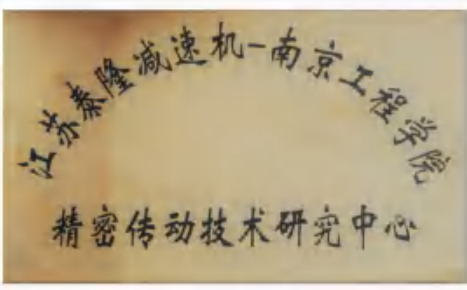 江苏泰隆减速机-南京工程学院
精密传动技术研究中心